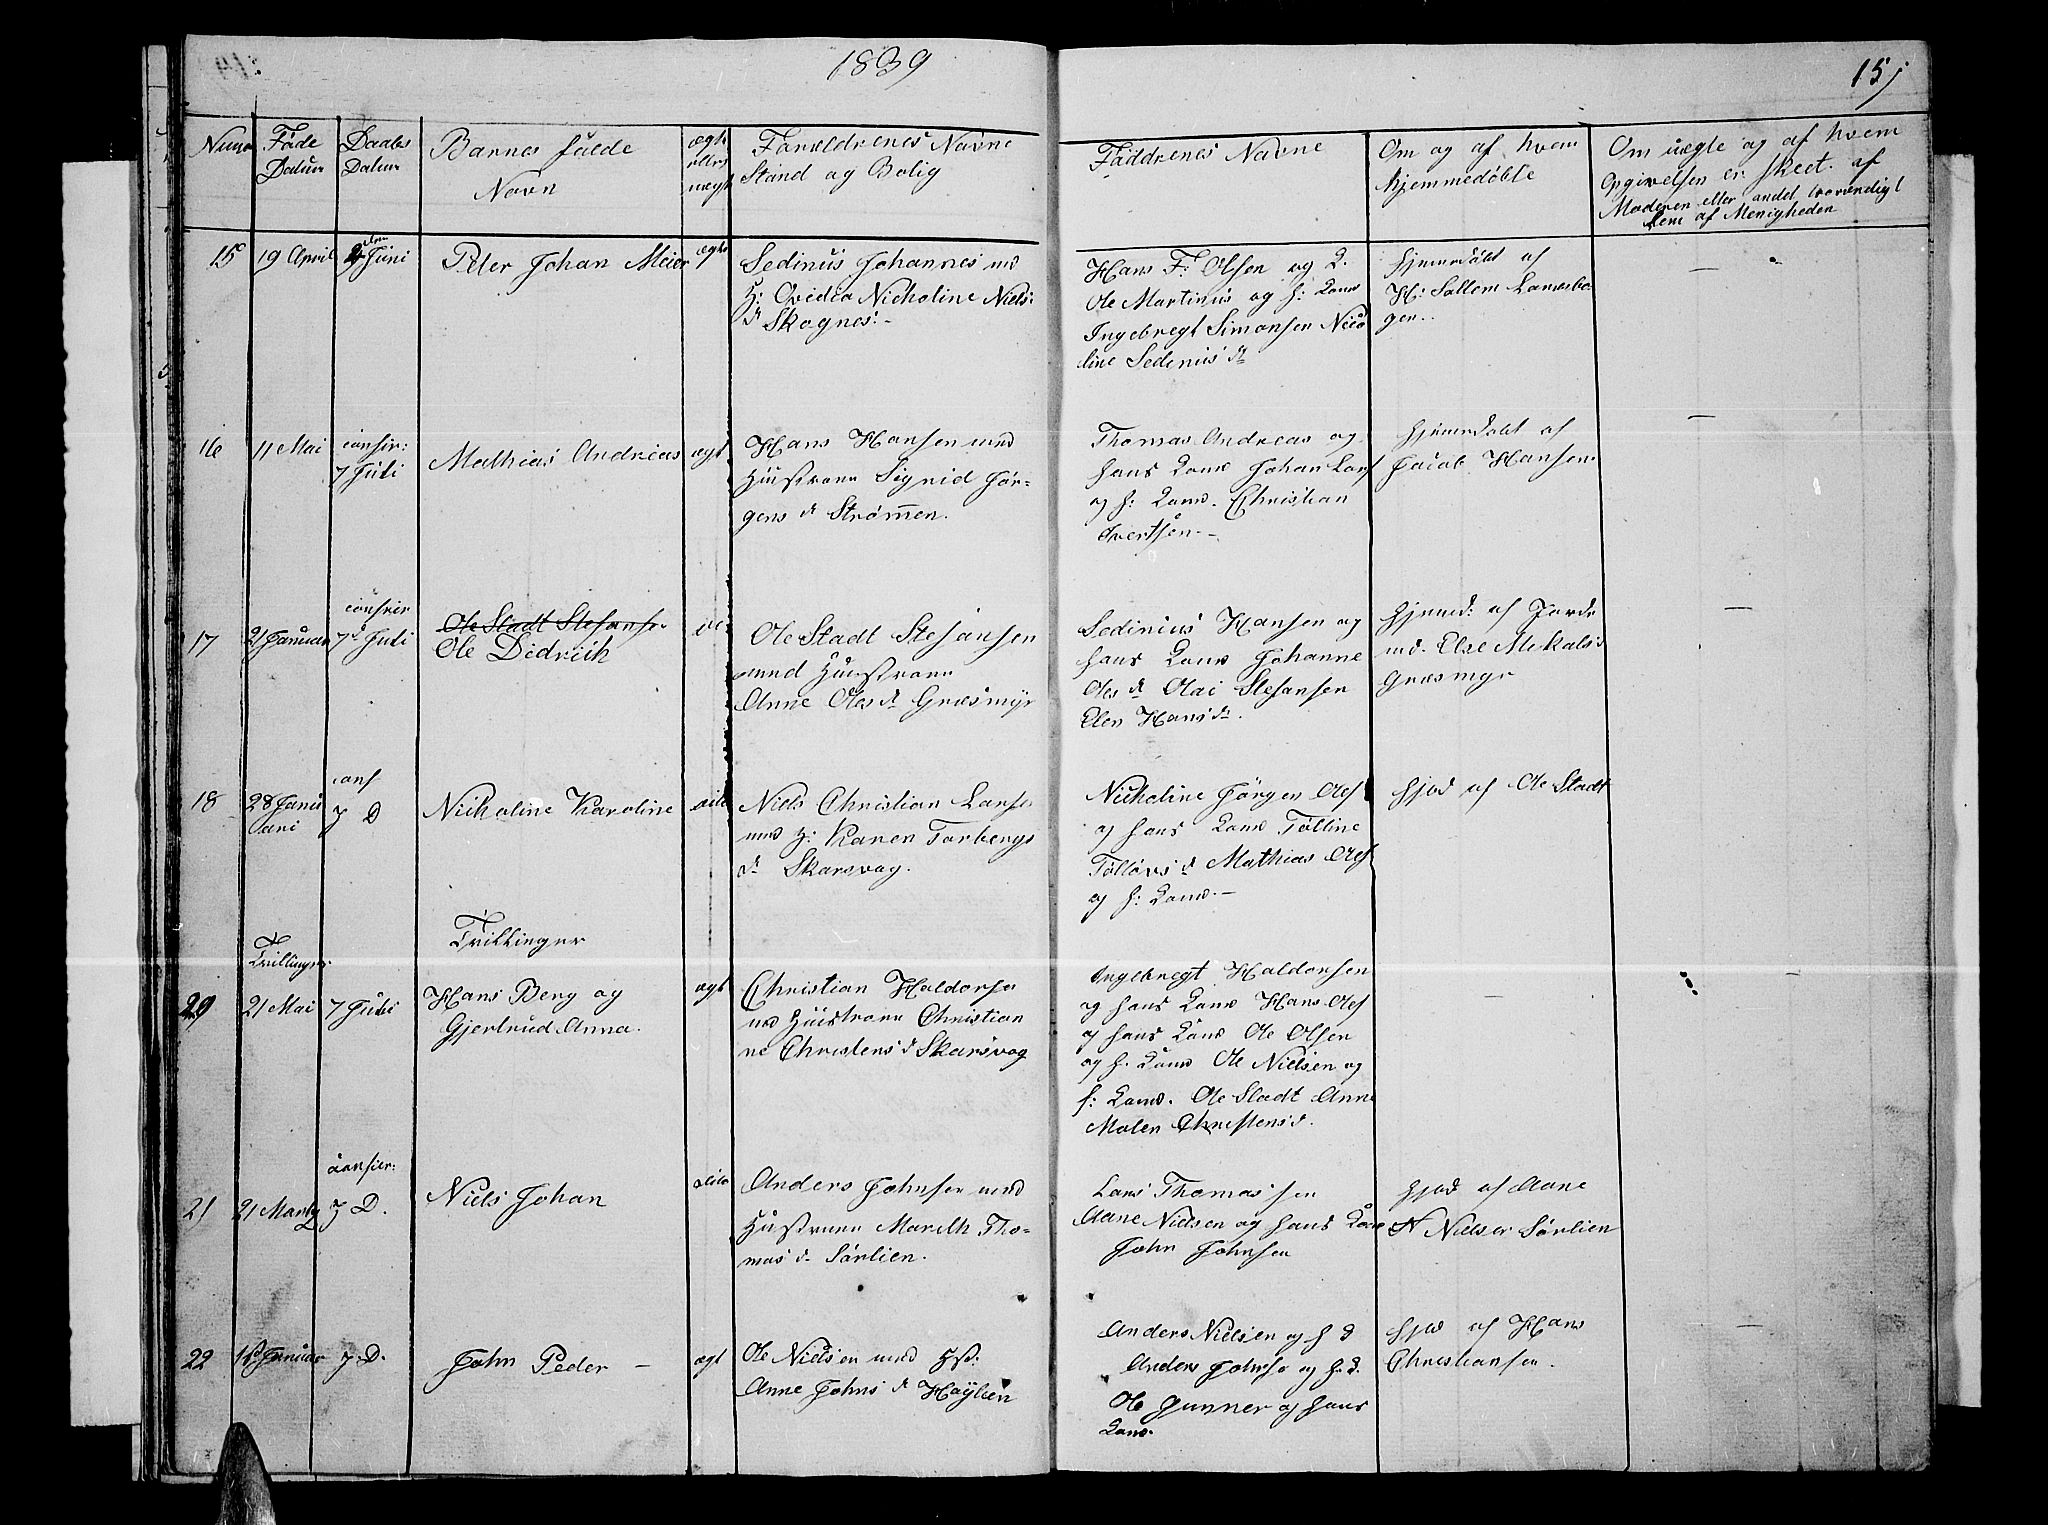 1839
15
Num
Føde
Datum
Daabs
Datum
Barnes fulde
Navn
ægte
eller
uægt
Foraldrenes Navne
Stand og Bolig
Faddrenes Navne
Om og af hvem
hjemmedøbte
Om uægte og af hvem
Opgivelsen er skeet. af
Moderen eller andet troværdigt
Lem af Menigheden
15
19 April
2den Juni
Peter Johan Meier
ægte
Sedinus Johannes md
H: Ovidia Nicholine Niels:
d Skognes:-
Hans F: Olsen og Q.
Ole Martinus og h: Qone
Ingebregt Simonsen Nico
line Sedinus dr
hjemedøbt af
H: Sallem Lanesbo
gen..
16
11 Mai
consir:
7 Juli
Mathias Andreas
ægt
Hans Hansen med
Hustrue Sigrid Jør-
gens dr Strømen.
Thomas Andreas og
hans Qone Johan Lars
og h: Qone. Christian
Ivertsen.-
hjemedøbt af
Jacob Hansen.
17
21 Januar
confir
7de Juli
Ole Stadt Stefanse
Ole Didrich
Ole Stadt Stefansen
med Hustrue
Anne Oles dr Græsmyr
Sedinius Hansen og
hans Qone Johanne
Oles dr Olai Stefansen
Elen Hans dr.
hjemd: af Jorde
md. Else Mikals d
Græsmyr
18
28 Janu
ari
conf
7 D
Nickoline Karoline
Niels Christian Larse
med H: Karen Torbergs
dr Skarsvag.
Nicholine Jørgen Oles
og hans Qone Tolline
Tollovs dr Mathias Oles
og h: Qone.-
hjed af Ole Stadt
Tvillinger
Tvillinger
20
21 Mai
7 Juli
Hans Berg og
Gjertrud Anna.
ægt
Christian Haldorse
md Hustrue Christian
ne Christens d Skarsvog
Ingebregt Haldorsen
og hans Qone Hans Oles
og hans Qone Ole Olsen
og h. Qone Ole Nielsen og
h: Qone. Ole Stadt Anne
Malen Christens d.
21
21 Marty
confier:
7 D.
Niels Johan
dito
Anders Johnsen med
Hustrue Marith Tho-
mas dr Sörlien.
Lars Thomas'sen
Aane Nielsen og hans Qone
John Johnsen
hjed af Aane
N Nielser Sörlien
22
Januar
7 D.
John Peder -
ægt
Ole Nielsen med Hst:
Anne Johns dr Høylien
Anders Nielsen og h Q
Anders Johnse og h. Q.
Ole Gunner og hans
Qone.
hjed af Hans
Christiansen.